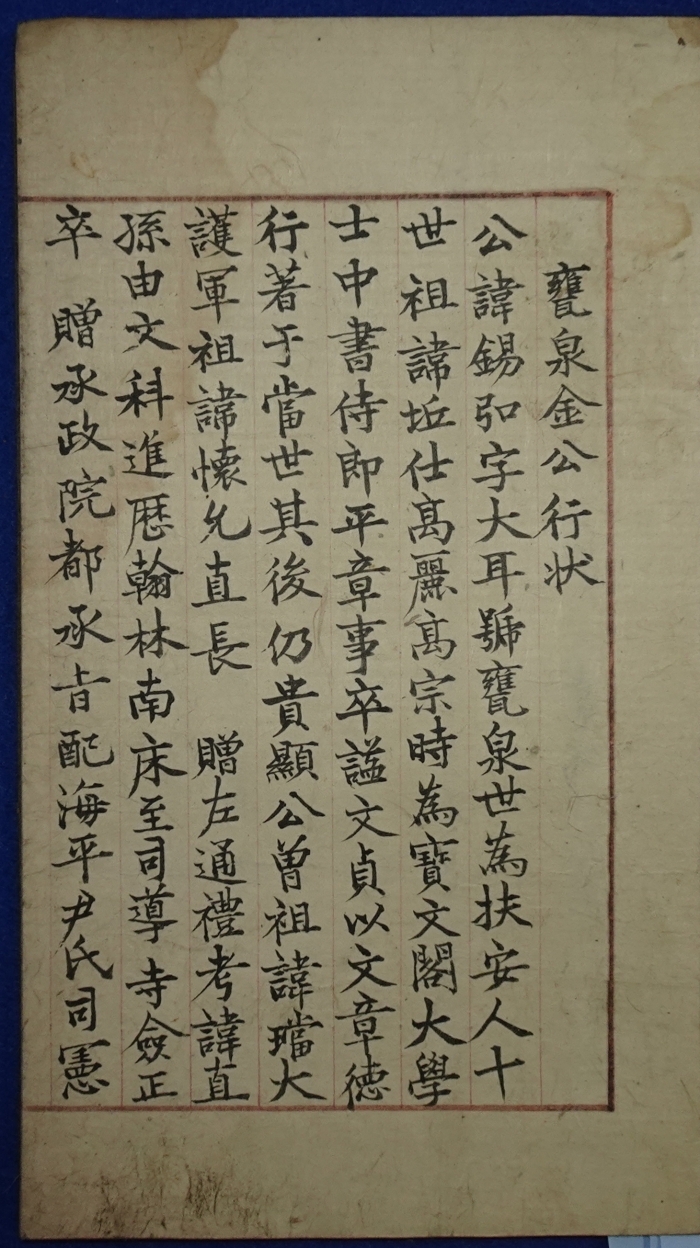 甕泉金公行状
公諱錫弘字大耳號甕泉世為扶安人十
世祖諱坵仕髙麗髙宗時為寶文閣大學
士中書侍郎平章事卒謚文貞以文章德
行著于當世其後仍貴顯公曽祖諱璫大
護軍祖諱懷允直長 贈左通禮考諱直
孫由文科進歷翰林南床至司導寺僉正
卒 贈承政院都承㫖配海平尹氏司憲